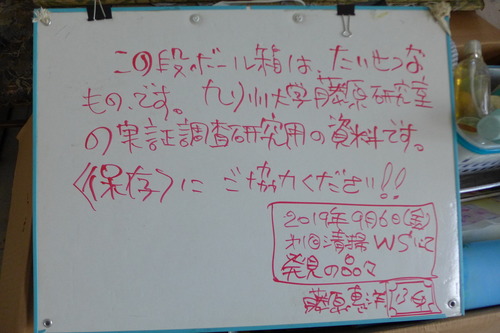 この段ボール箱は、たいせつな
もの、です。九州大学藤原研究室
の実証調査研究用の資料です。
《保存》に ご協力ください!!
2019年9月6日(金)
清掃WSにて
発見の品々
藤原惠洋